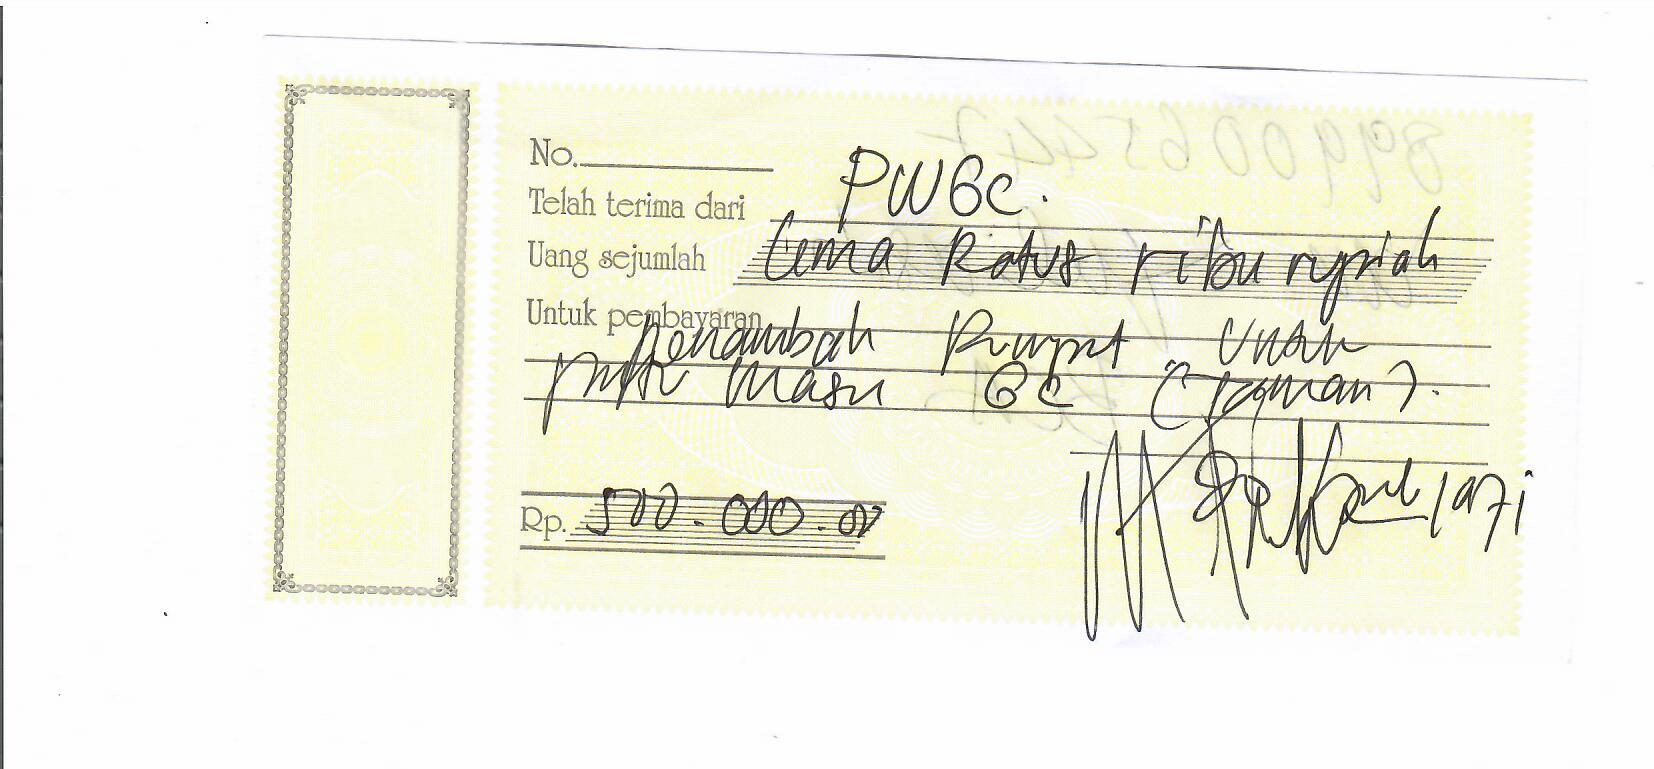 No.
Telah terima dari PWGC.
Uang sejumlah Lima Ratus ribu rupiah
Untuk pembayaran Penambah Rumput Untuk
pintu masuk GC (Taman).
Rp. 500.000.00